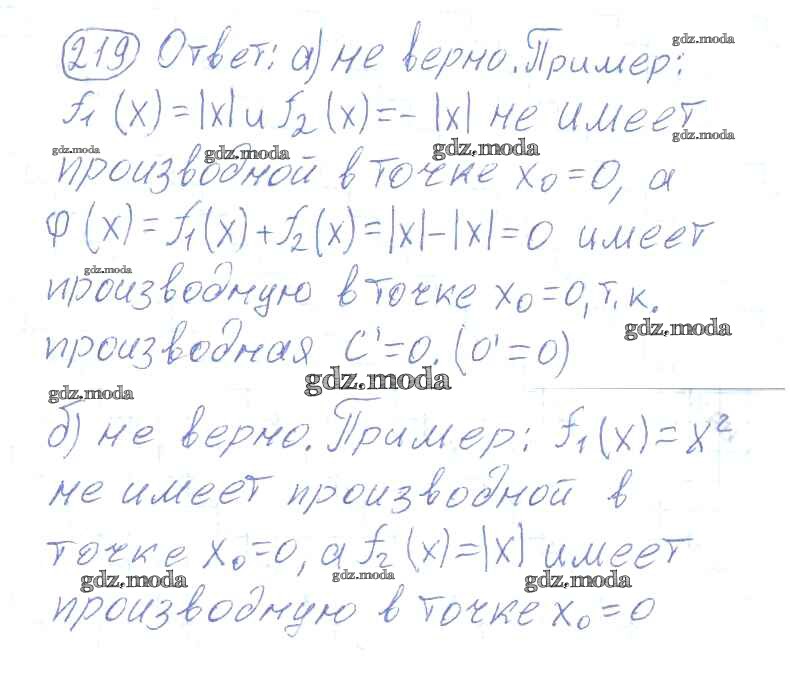 219 Ответ: а) не верно. Пример:
f₁(x) = |x| и f₂(x) = - |x| не имеет
производной в точке x₀ = 0, а
φ(x) = f₁(x) + f₂(x) = |x| - |x| = 0 имеет
производную в точке x₀ = 0, т.к.
производная C' = 0. (0' = 0)
б) не верно. Пример: f₁(x) = x²
не имеет производной в
точке x₀ = 0, а f₂(x) = |x| имеет
производную в точке x₀ = 0
gdz.moda
gdz.moda
gdz.moda
gdz.moda
gdz.moda
gdz.moda
gdz.moda
gdz.moda
gdz.moda
gdz.moda
gdz.moda
gdz.moda